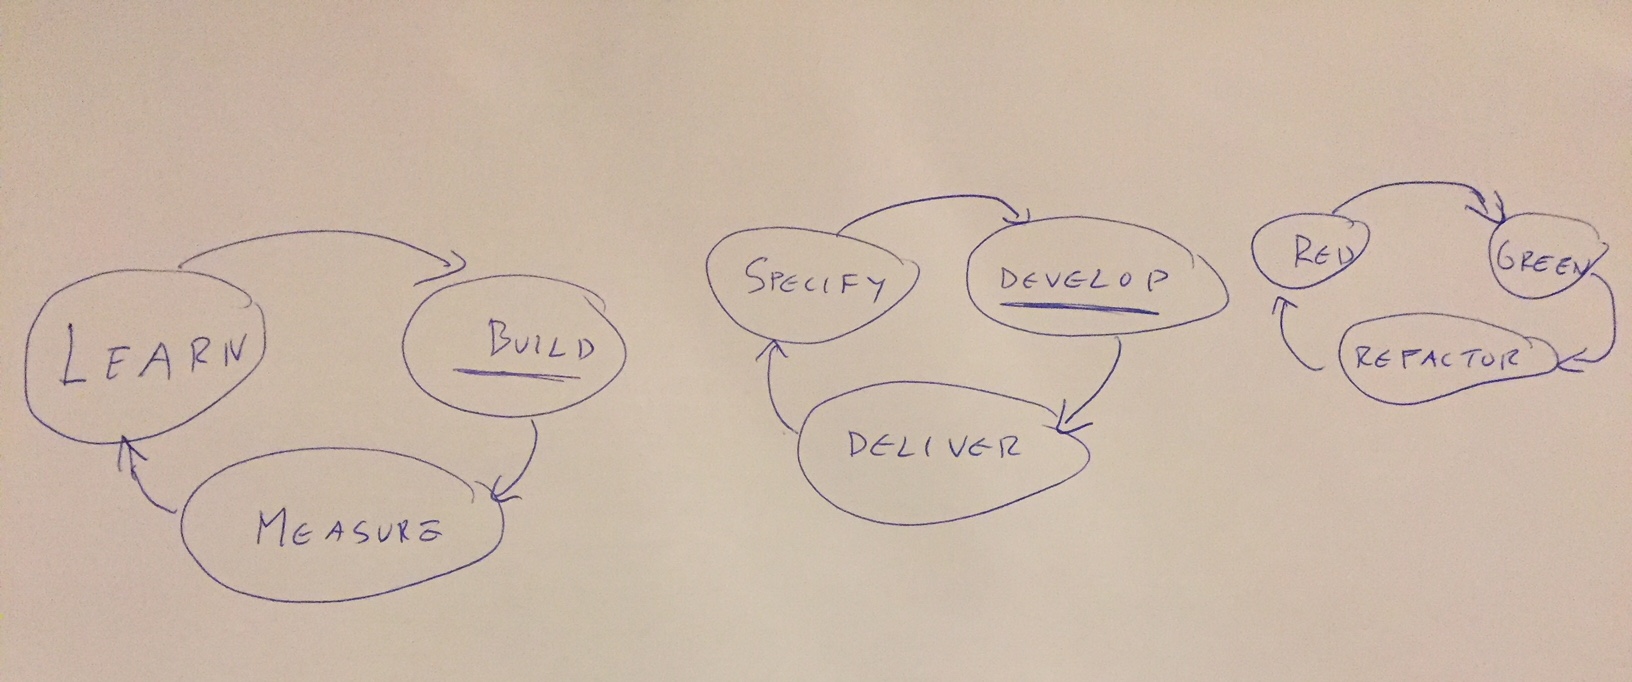 LEARN
BUILD
MEASURE
SPECIFY
DEVELOP
DELIVER
RED
GREEN
REFACTOR